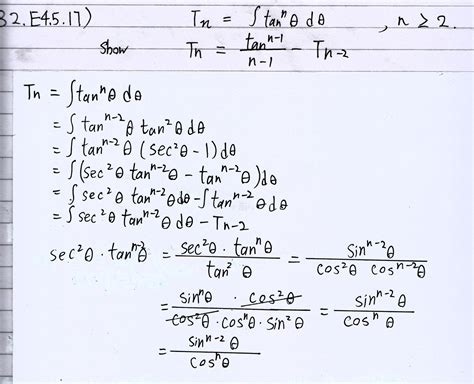 32.E4.5.17) Tn = ∫tanⁿθ dθ , n ≥ 2.
Show Tn = tanⁿ⁻¹/n-1 - Tn-2
Tn = ∫tanⁿθ dθ
= ∫tanⁿ⁻²θ tan²θ dθ
= ∫tanⁿ⁻²θ (sec²θ - 1)dθ
= ∫(sec²θ tanⁿ⁻²θ - tanⁿ⁻²θ)dθ
= ∫sec²θ tanⁿ⁻²θdθ - ∫tanⁿ⁻²θdθ
= ∫sec²θ tanⁿ⁻²θ dθ - Tn-2
sec²θ · tanⁿ⁻²θ = sec²θ · tanⁿθ / tan²θ = sinⁿ⁻²θ / cos²θ cosⁿ⁻²θ
= sinⁿθ · cos²θ / cos²θ · cosⁿθ · sin²θ = sinⁿ⁻²θ / cosⁿθ
= sinⁿ⁻²θ / cosⁿθ